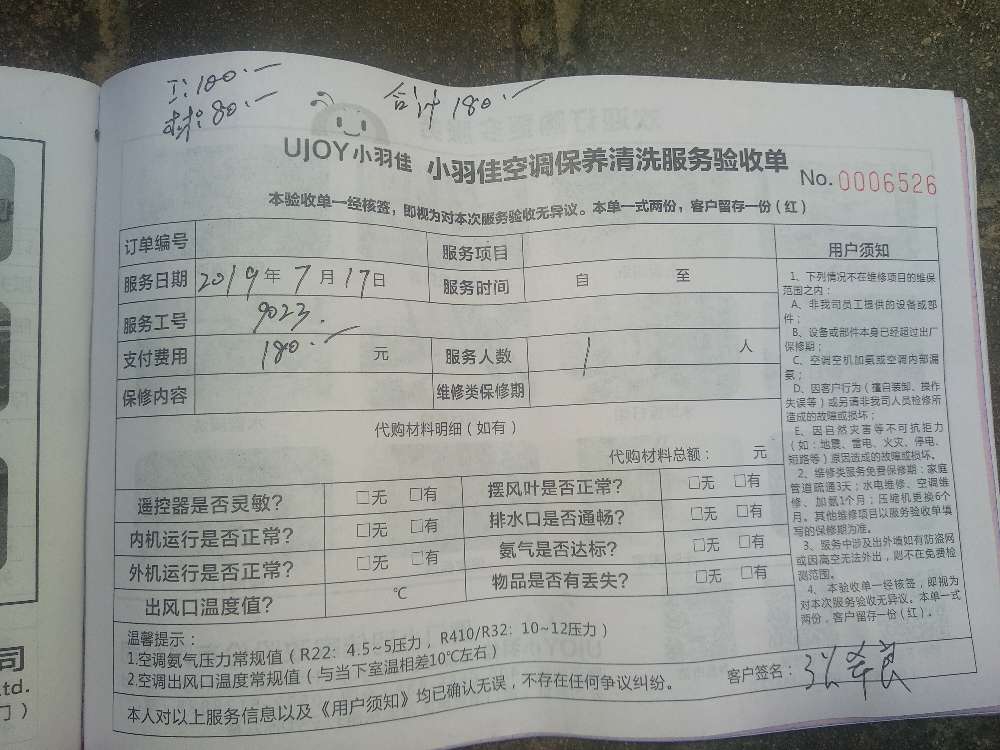 工：100.一
材：80.一
合计 180.一
UJOY小羽佳 小羽佳空调保养清洗服务验收单
No. 0006526
本验收单一经核签，即视为对本次服务验收无异议。本单一式两份，客户留存一份（红）
订单编号 服务项目
服务日期 2019年 7月17日 服务时间 自 至
服务工号 9023.
支付费用 180.一 元 服务人数 1 人
保修内容 维修类保修期
代购材料明细（如有）
代购材料总额： 元
遥控器是否灵敏? □无 □有 摆风叶是否正常? □无 □有
内机运行是否正常? □无 □有 排水口是否通畅? □无 □有
外机运行是否正常? □无 □有 氨气是否达标? □无 □有
出风口温度值? ℃ 物品是否有丢失? □无 □有
温馨提示：
1.空调氨气压力常规值（R22：4.5~5压力，R410/R32：10~12压力）
2.空调出风口温度常规值（与当下室温相差10℃左右）
本人对以上服务信息以及《用户须知》均已确认无误，不存在任何争议纠纷。
客户签名：
用户须知
1、下列情况不在维修项目的维保
范围之内：
A、非我司员工提供的设备或部
件；
B、设备或部件本身已经超过出厂
保修期；
C、空调空机加氨或空调内部漏
氨；
D、因客户行为（擅自装卸、操作
失误等）或另请非我司人员检修所
造成的故障或损坏；
E、因自然灾害等不可抗拒力
（如：地震、雷电、火灾、停电、
短路等）原因造成的故障或损坏。
2、维修类服务免费保修期：家庭
管道疏通3天；水电维修、空调维
修、加氨1个月；压缩机更换6个
月。其他维修项目以服务验收单填
写的保修期为准。
3、服务中涉及出外墙如有防盗网
或因高空无法外出，则不在免费检
测范围。
4、本验收单一经核签，即视为
对本次服务验收无异议。本单一式
两份，客户留存一份（红）。
司
td.
门）